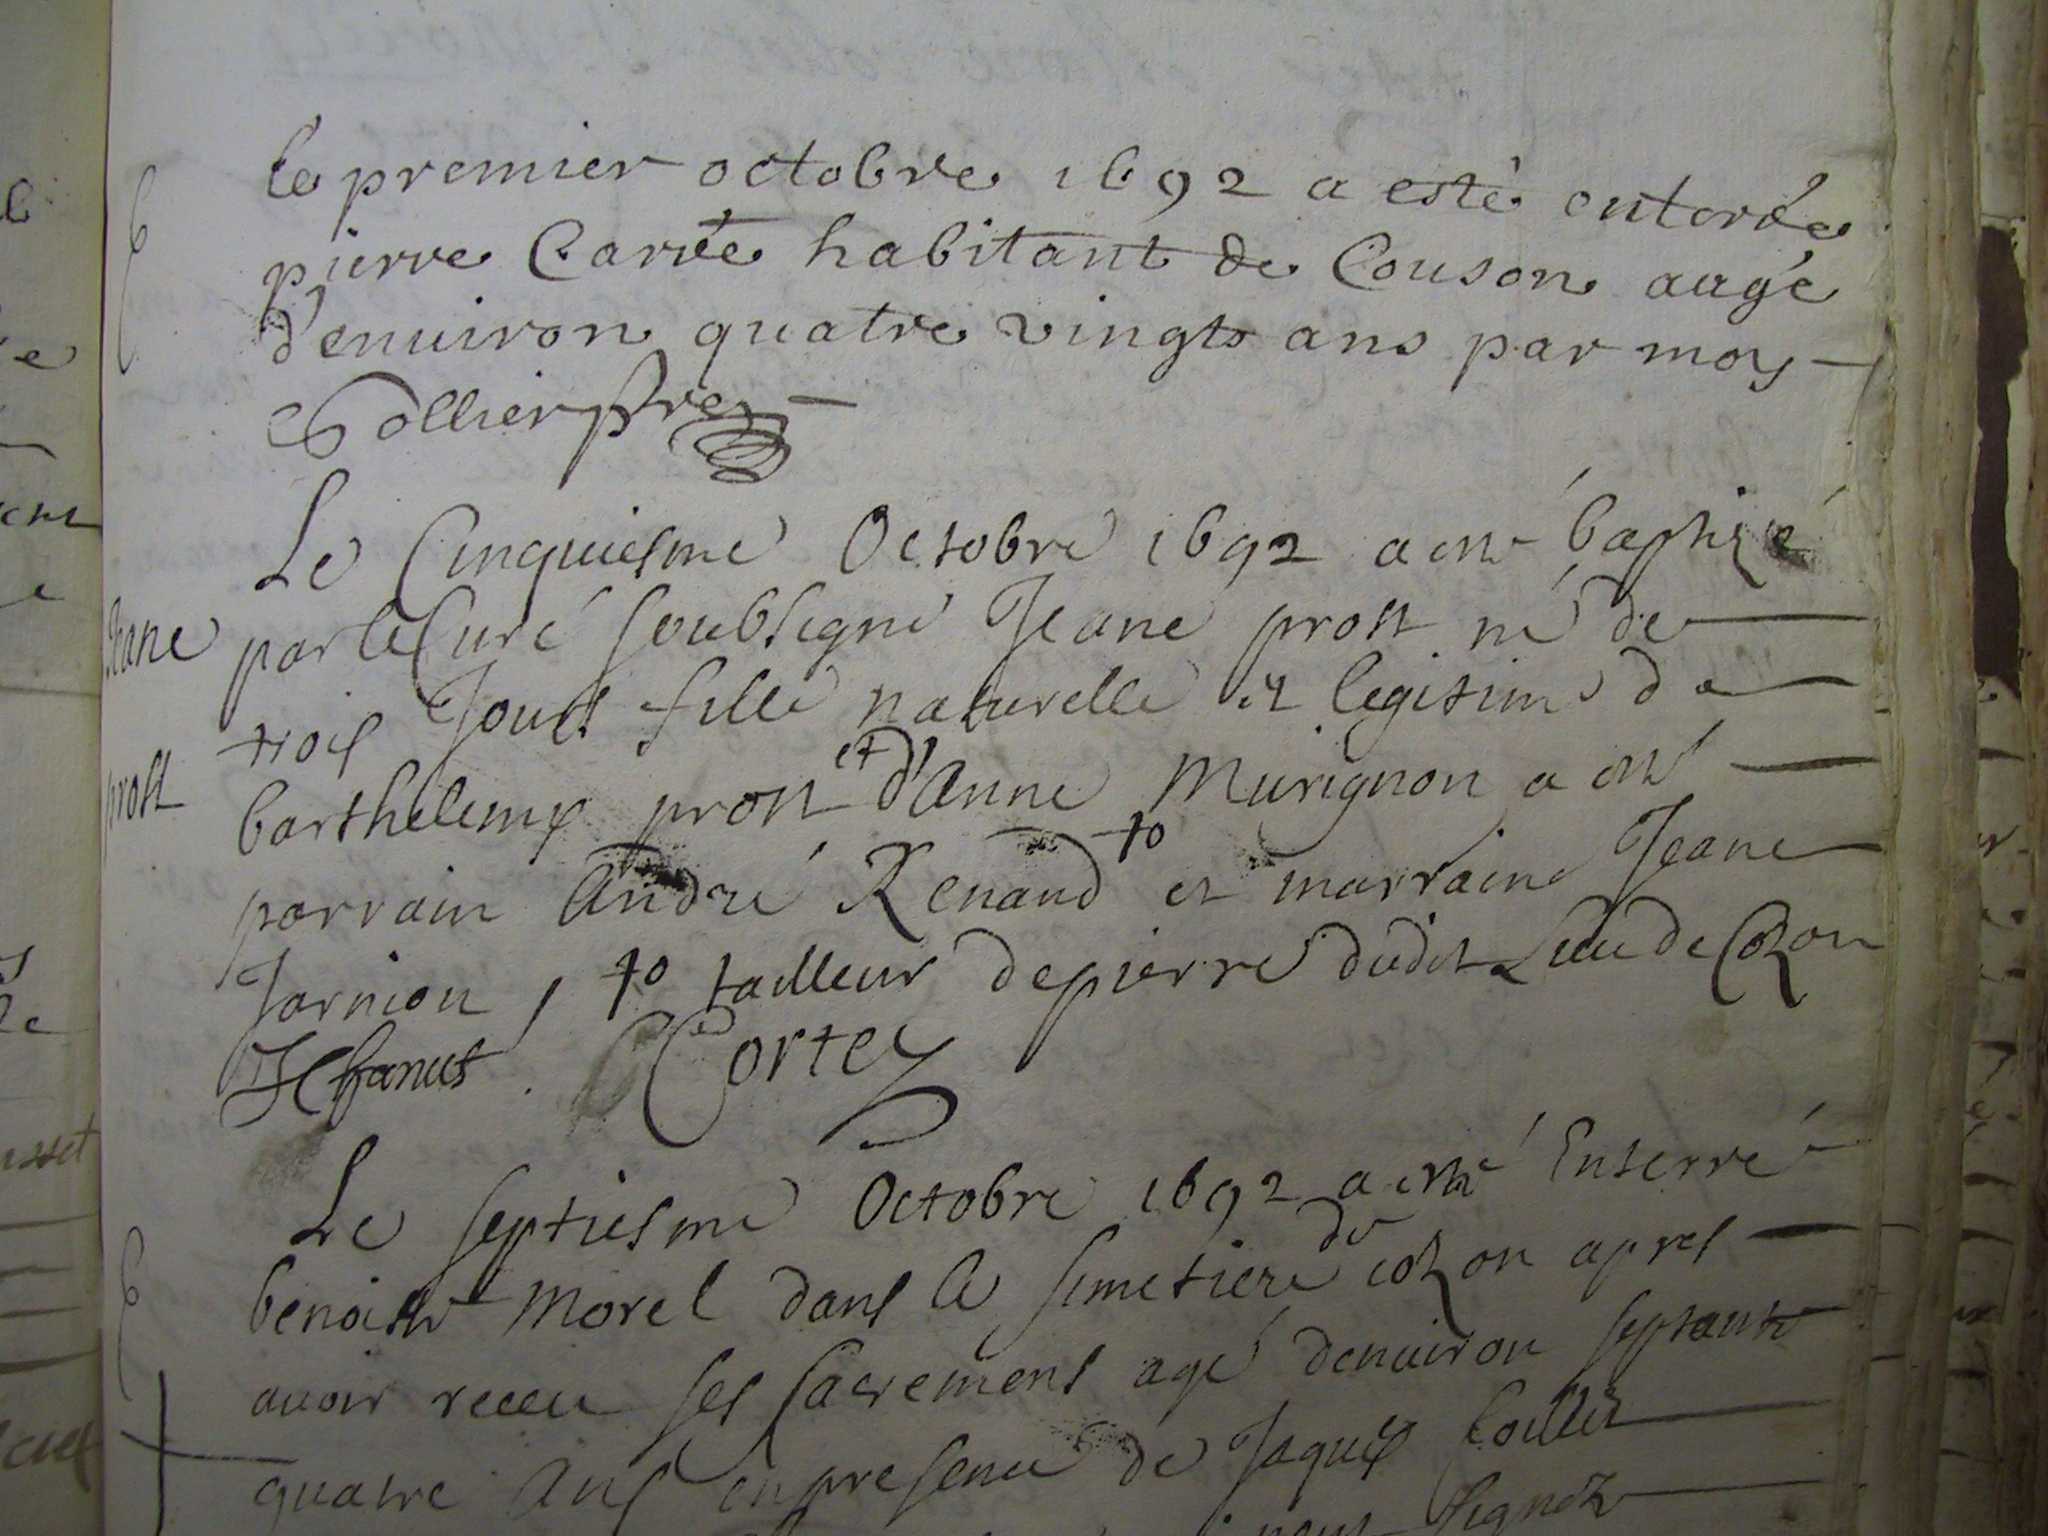 le premier octobre 1692 a esté enterée
pierre Carrée habitant de Couson aagé
d'enuiron quatre vingts ans par moy
Dollier pbre
Le Cinquiesme Octobre 1692 a esté baptizé
par le Curé soubsigné Jeane prost né de
Jeane
trois Jours fille naturelle et legitime de
prost
barthelemy prost et d'Anne Murignon a esté
parrain André Renaud + et marraine Jeane
Jarnion, + tailleur de pierre dudit Lieu de Cozon
Cortey
Le septiesme Octobre 1692 a esté Enterré
benoist Morel dans le simetiere de cozon apres
auoir receu ses sacrements agé denuiron septante
quatre Ans en presence de Jaques